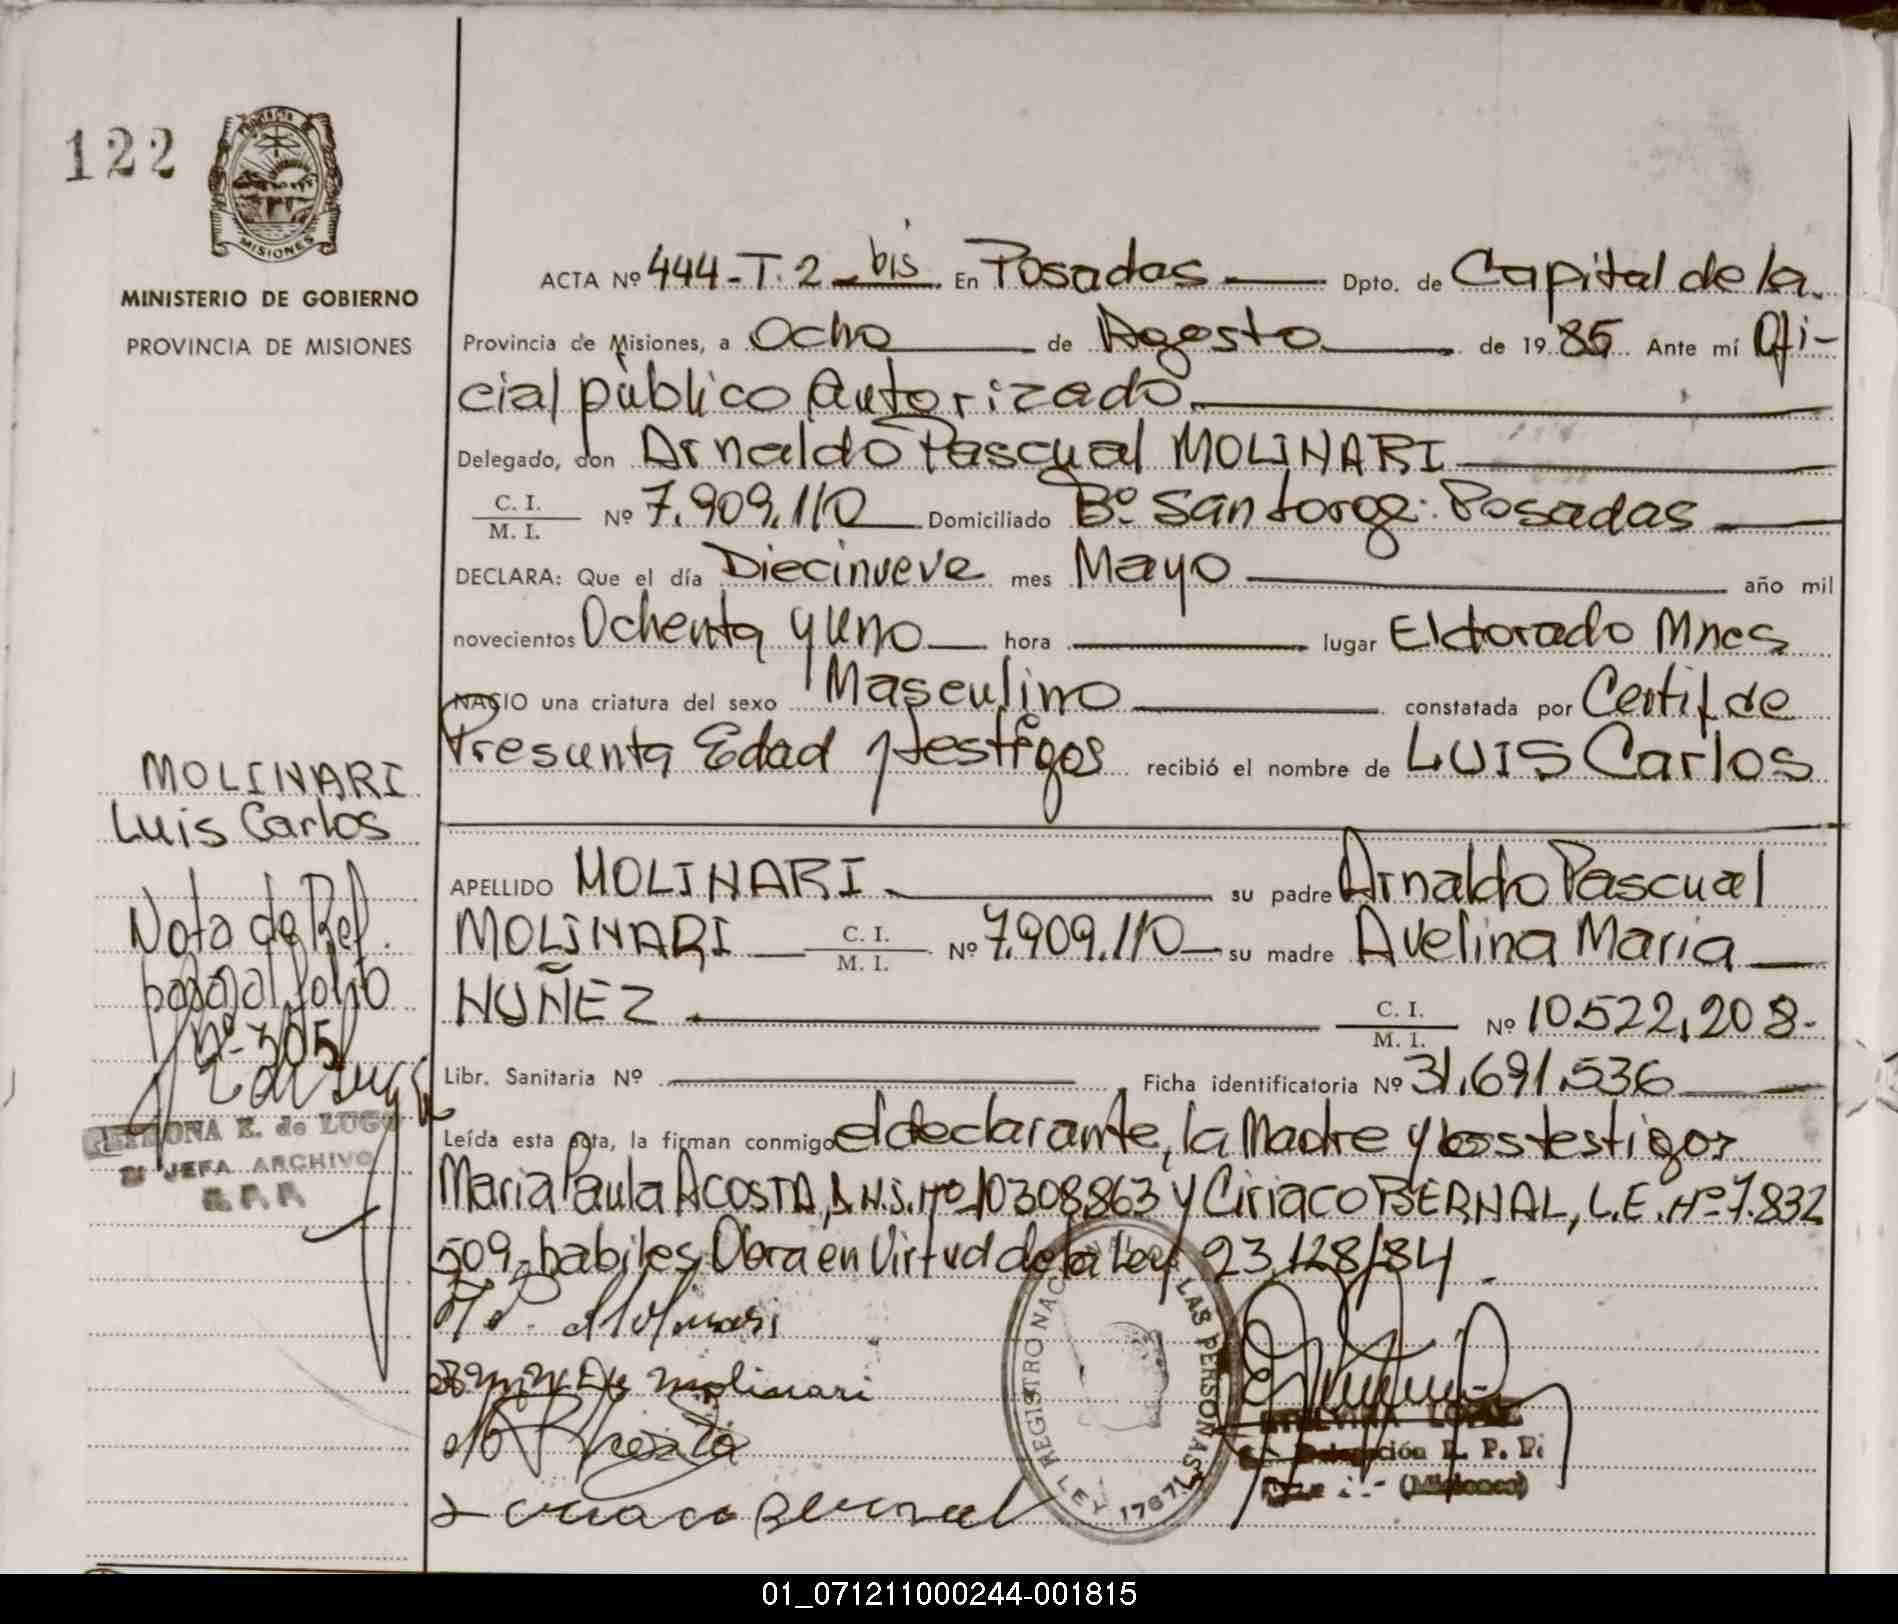 122
PROVINCIA DE
MISIONES
MINISTERIO DE GOBIERNO
PROVINCIA DE MISIONES
ACTA Nº 444-T.2 bis En Posadas Dpto. de Capital de la
Provincia de Misiones, a Ocho de Agosto de 1985 Ante mí Ofi-
cial público Autorizado
Delegado, don Arnaldo Pascual MOLINARI
C. I.
M. I. Nº 7.909.110 Domiciliado Bº San Jorge: Posadas
DECLARA: Que el día Diecinueve mes Mayo año mil
novecientos Ochenta y Uno hora lugar Eldorado Mnes
NACIO una criatura del sexo Masculino constatada por Certif de
Presunta Edad y testigos recibió el nombre de LUIS Carlos
MOLINARI
Luis Carlos
Nota de Ref.
al folio
nº 305
JEFA ARCHIVO
R. P. P.
APELLIDO MOLINARI su padre Arnaldo Pascual
MOLINARI C. I. M. I. Nº 7.909.110 su madre Avelina Maria
NUÑEZ C. I. M. I. Nº 10.522.208-
Libr. Sanitaria Nº Ficha identificatoria Nº 31.691.536
Leída esta acta, la firman conmigo el declarante, la Madre y los testigos
Maria Paula ACOSTA, D.N.I. Nº 10308.863 y Ciriaco BERNAL, L.E. Nº 7.832
509-habiles, Obra en Virtud de la Ley 23.128/84
A P. Molinari
Molinari
Ciriaco Bernal
REGISTRO NACIONAL DE LAS PERSONAS
LEY 17671
LOPEZ
Delegación R. P. P.
(Misiones)
01_071211000244-001815